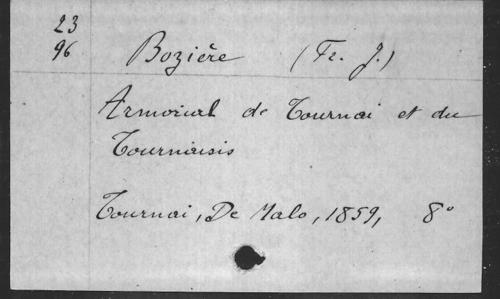 23
96
Bozière (Fr. J.)
Armorial de Tournai et du
Tournaisis
Tournai, De Malo, 1859, 8°